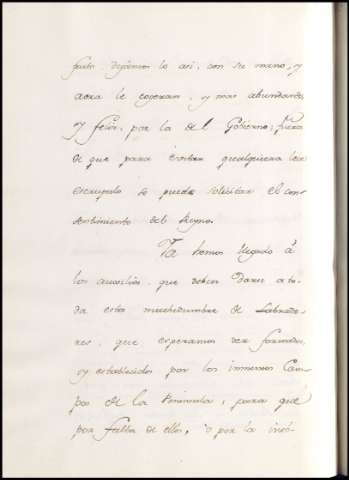 fruto dejemos lo asi, con su mano, y
aora le cogeran, y mas abundante,
y feliz, por la del Govierno; fuera
de que para evitar qualquiera leve
escrupulo se puede solicitar el con-
sentimiento del Reyno.
Ya hemos llegado á
los auxilios, que deben darse a to-
da esta muchedumbre de Labrado-
res, que esperamos ver formados,
y establecidos por los inmensos Cam-
pos de la Peninsula; para que
por falta de ellos, ò por la inco-